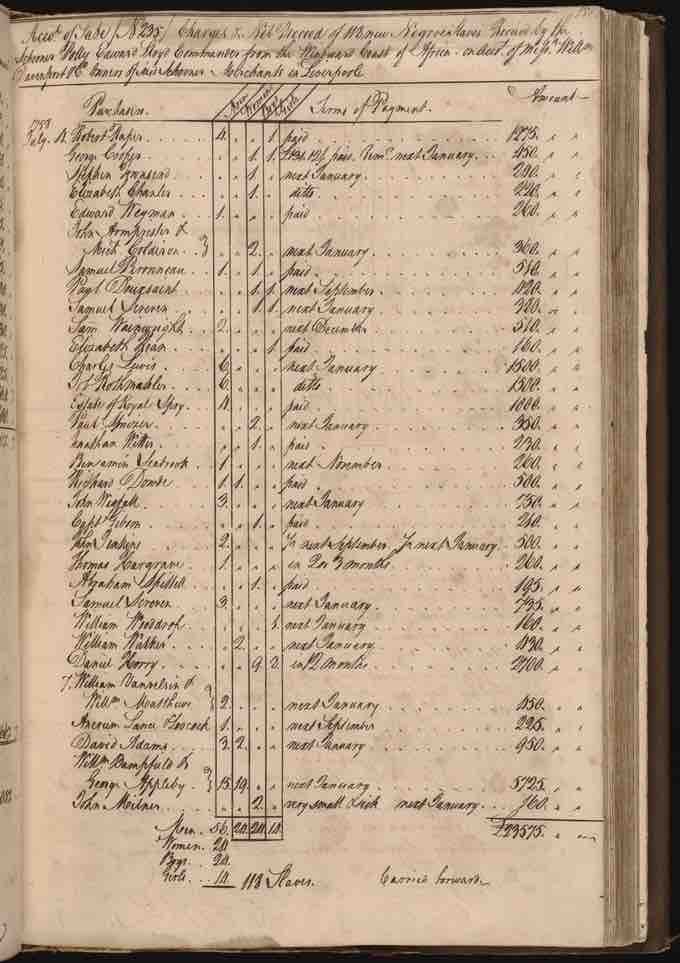 Accot. of Sale (No. 235) Charges & Net Proceed of 118 new Negroe slaves Received by the
Schooner Hardy Edward Lloyd Commander from the Windward Coast of Africa on accot. of Messrs. Willm.
Davenport & Co. Owners of said Schooner Merchants in Liverpoole
Purchasers. Men Women Boys Girls Terms of Payment. Amount
1755
July. 11. Robert Raper 4. 1. paid 1275.
George Cooper 1. 1. paid. Remr. next January 450.
Stephen Townsend 1. next January. 200.
Elizabeth Chanler 1. ditto. 220.
Edward Weyman 1. paid 260.
John &
Mich Coldiron 2. next January. 360.
Samuel Peronneau 1. 1. paid. 510.
1. 1. next September. 420.
Samuel Screven 1. 1. next January. 320.
Sam Wainwright 2. next December. 510.
Elizabeth 1. paid. 160.
Charles Lewis 6. next January 1500.
Job Rothmahler 6. ditto 1500.
Estate of Royal Spry. 4. paid. 1000.
Paul 2. next January. 350.
Jonathan Witter. 1. paid. 230.
Benjamin Seabrook. 1. next November. 260.
Richard 1. 1. paid. 500.
John Wigfall. 3. next January 750.
Capt. 1. paid. 210.
John Jenkins 2. ½ next September. ½ next January. 500.
Thomas Hargrave. 1. in 2 or 3 months. 260.
Abraham 1. paid 195.
Samuel Screven 3. next January. 735.
William Woodrof. 1. next January. 160.
William Walker 2. next January. 430.
Daniel Horry. 9. 2. in 12 months. 2100.
7. William Vanvelsin &
Willm. Matthews 2. next January 450.
1. next September 225.
David Adams. 3. 2. next January. 950.
Willm. Bampfield &
George Appleby 15. 19. next January 5725.
John Milner 2. very small & sick next January. 360.
Men. 56. 24. 24. 14. £23575.
Women. 24.
Boys. 24.
Girls. 14. 118 Slaves. Carried forward